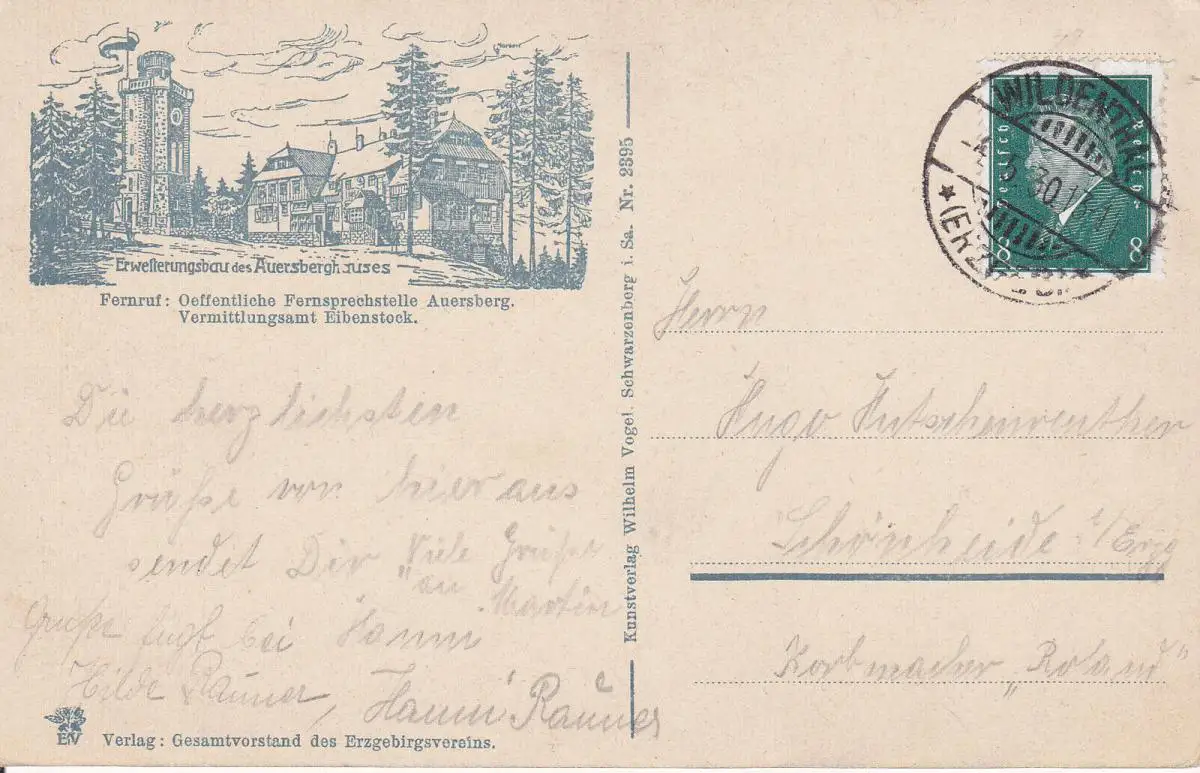 Erweiterungsbau des Auersberghauses
Fernruf: Oeffentliche Fernsprechstelle Auersberg.
Vermittlungsamt Eibenstock.
Die herzlichsten
Grüße von hier aus
sendet Dir
Viele Grüße
an Martin
Grüße fügt bei
Hilde Rauner, Hanni Rauner
EV Verlag: Gesamtvorstand des Erzgebirgsvereins.
Kunstverlag Wilhelm Vogel. Schwarzenberg i. Sa. Nr. 2395
WILDENTHAL
(ERZGEB.)
Deutsches Reich
8 8
Herrn
Hugo Hutschenreuther
Schönheide i/Erzg
Korbmacher „Roland“